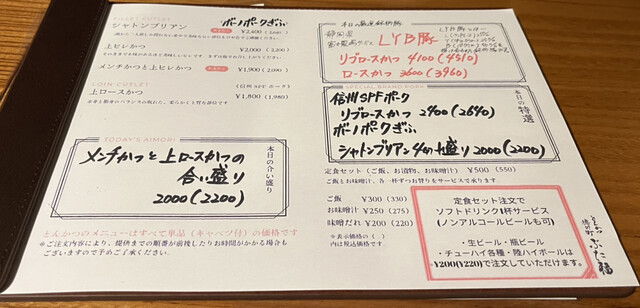 FILLET CUTLET
ボーノポークぎふ
シャトンブリアン
¥2,400 (2,640)
上ヒレかつ
¥2,000 (2,200)
メンチかつと上ヒレかつ
¥1,900 (2,090)
LOIN CUTLET
(信州 SPF ポーク)
上ロースかつ
¥1,800 (1,980)
TODAY'S AIMORI
本日の合い盛り
メンチかつと上ロースかつの
合い盛り
2000(2200)
とんかつのメニューはすべて単品(キャベツ付)の価格です
※ご注文内容により、提供までの順番が前後したりお時間がかかる場合も
ございますので予めご了承ください。
本日の厳選銘柄豚
静岡県
LYB豚
LYB豚とは…
リブロースかつ 4100(4510)
ロースかつ 3600(3960)
本日の特選
信州SPFポーク
リブロースかつ 2400(2640)
ボーノポークぎふ
シャトンブリアン 4切れ盛り 2000(2200)
定食セット(ご飯、お漬物、お味噌汁) ¥500 (550)
ご飯とお味噌汁、各一杯ずつお替りをサービスで承ります。
ご飯 ¥300 (330)
お味噌汁 ¥250 (275)
味噌だれ ¥200 (220)
※表示価格の( )
内は税込価格です。
定食セット注文で
ソフトドリンク1杯サービス
(ノンアルコールビールも可)
・生ビール・瓶ビール
・チューハイ各種・陸ハイボールは
¥200(¥220)で注文していただけます。